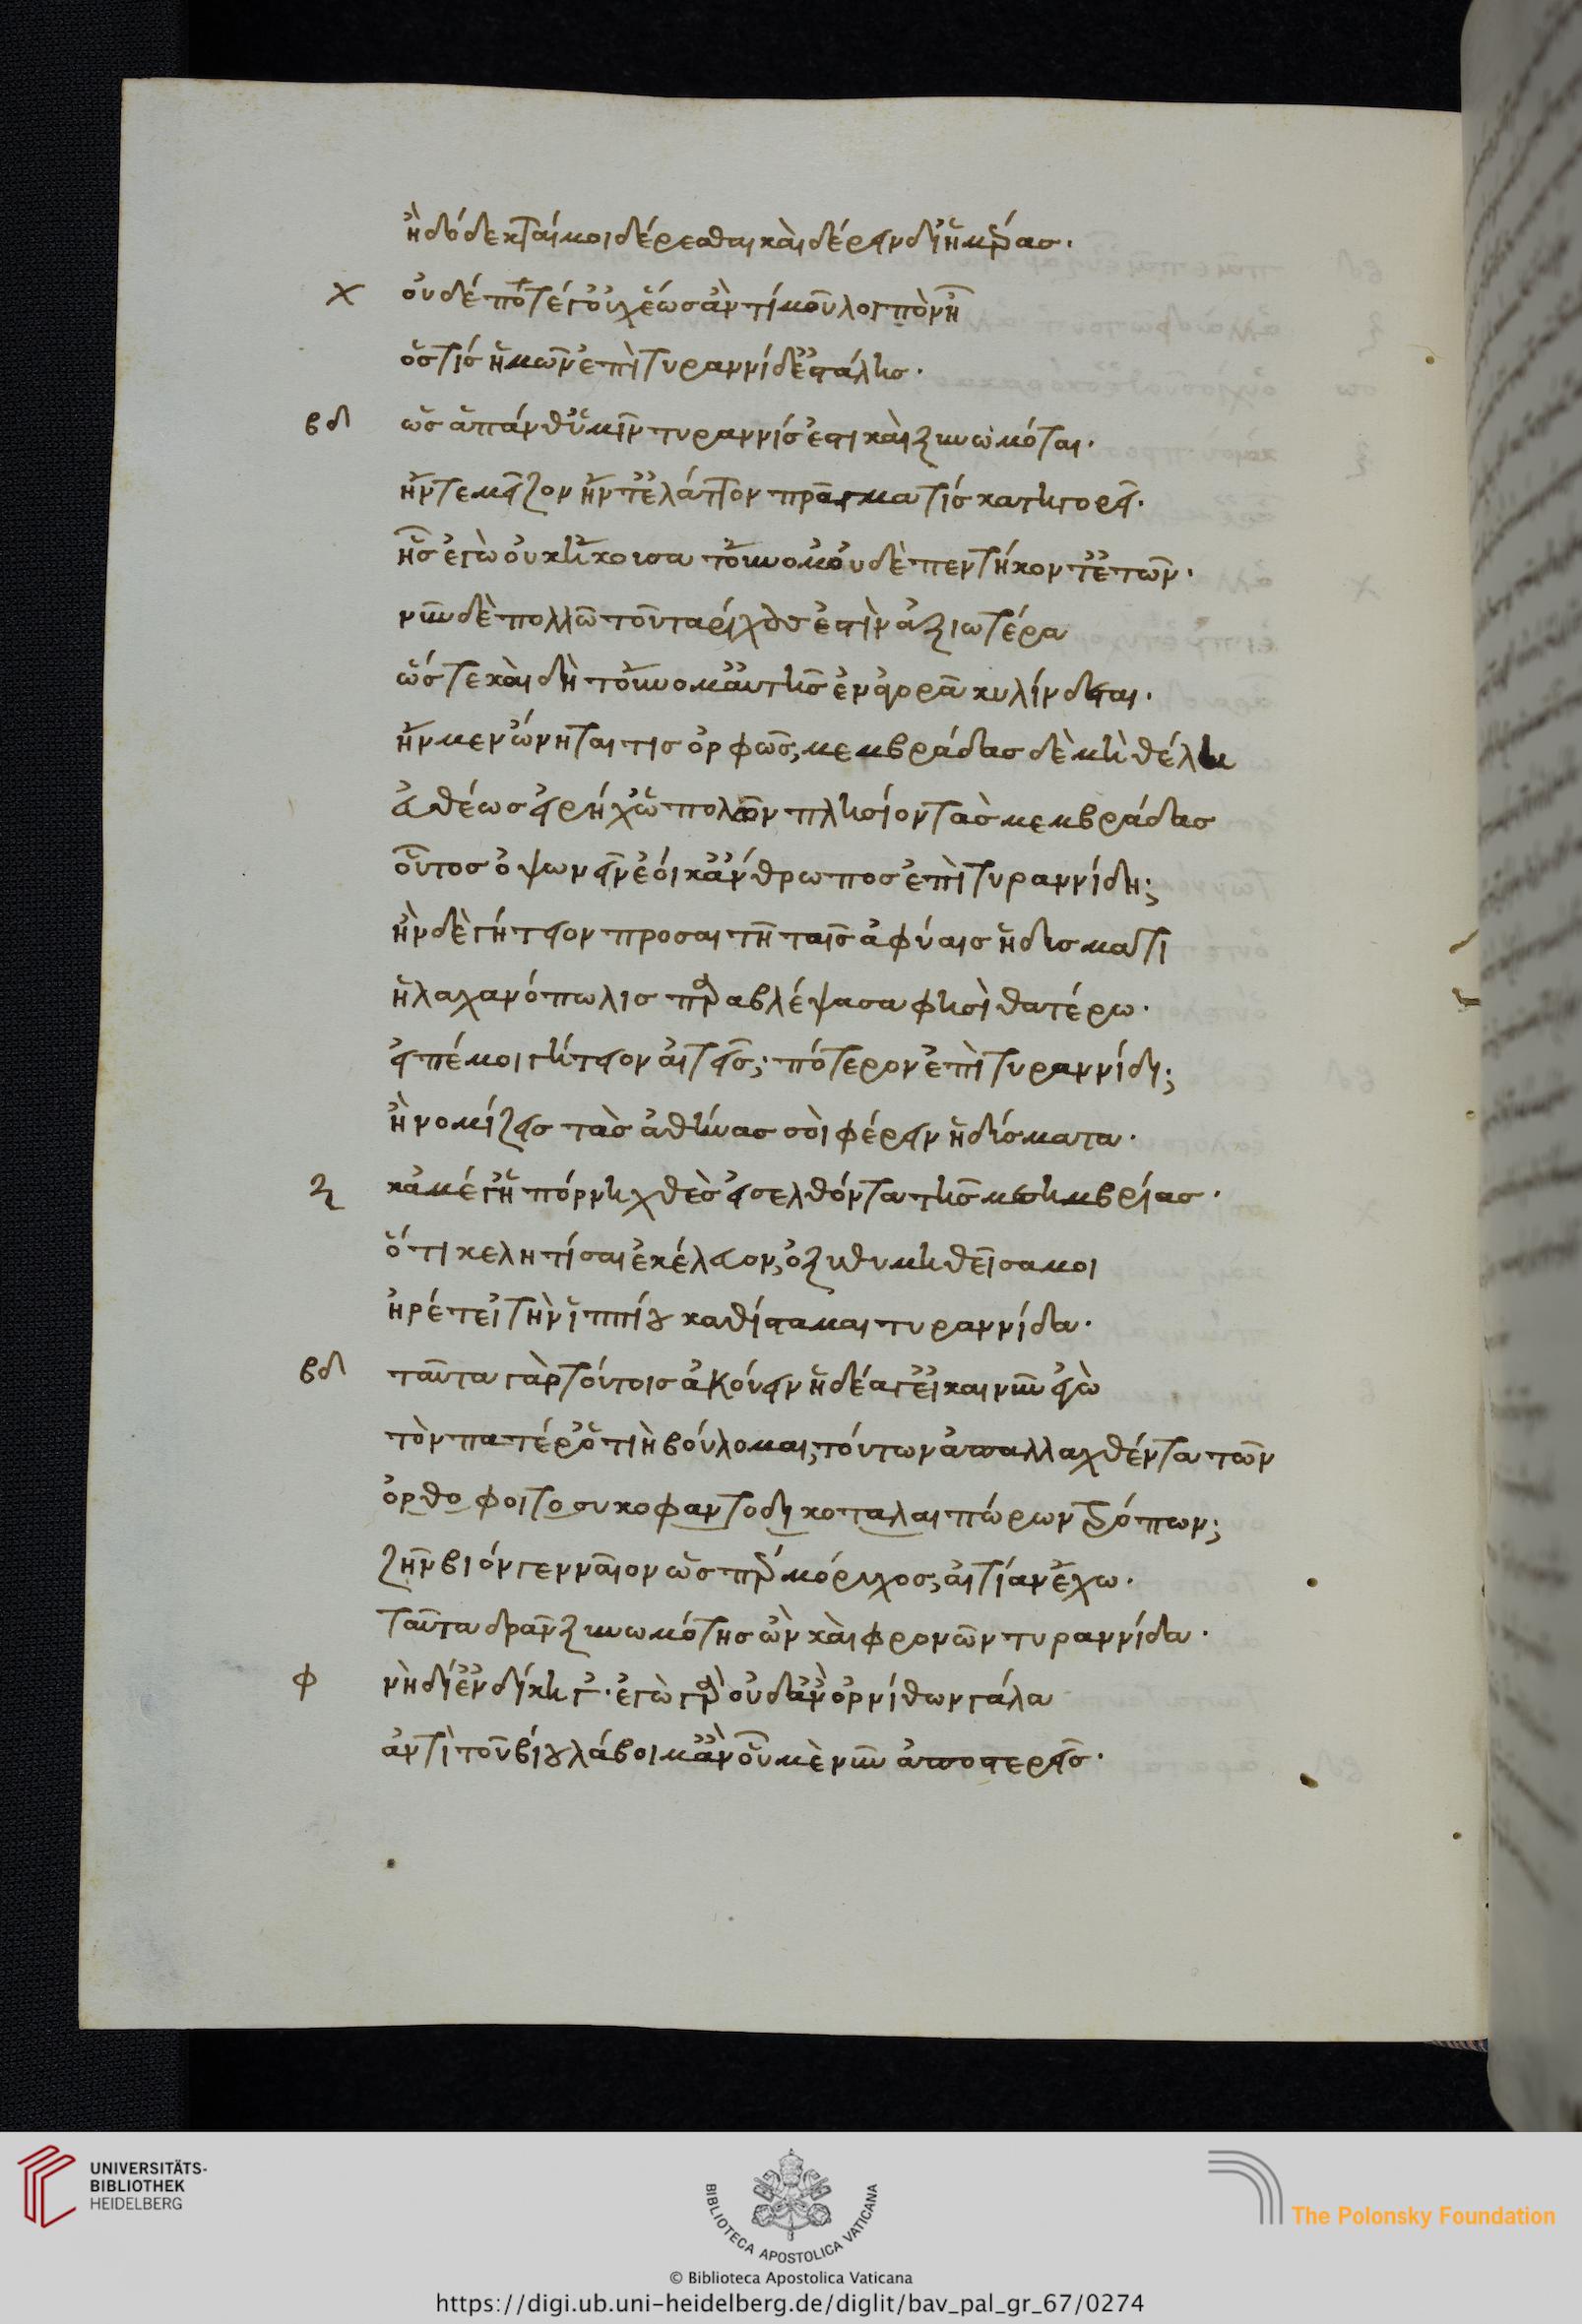 ἢ δέδεκταί μοι δέρεσθαι καὶ δέρειν δι' ἡμέρας.
χ οὐδέποτέ γ' οὐχ ἕως ἄν τί μου λοιπὸν ᾖ
ὅστις ἡμῶν ἐπὶ τυραννίδ' ἐστάλης.
βδ ὡς ἅπανθ' ὑμῖν τυραννίς ἐστι καὶ ξυνωμόται.
ἤν τε μεῖζον ἤν τ' ἔλαττον πρᾶγμά τις κατηγορεῖ.
ἧς ἐγὼ οὐκ ἤκουσα τοὔνομ' οὐδὲ πεντήκοντ' ἐτῶν.
νῦν δὲ πολλῶ τοῦ ταρίχους ἐστὶν ἀξιωτέρα
ὥστε καὶ δὴ τοὔνομ' αὐτῆς ἐν ἀγορᾶ κυλίνδεται.
ἢν μὲν ὠνῆταί τις ὀρφῶς, μεμβράδας δὲ μὴ θέλη
εὐθέως εἴρηχ' ὁ πωλῶν πλησίον τὰς μεμβράδας
οὗτος ὀψωνεῖν ἔοιχ' ἅνθρωπος ἐπὶ τυραννίδι;
ἢν δὲ γήτειον προσαιτῆ ταῖς ἀφύαις ἥδισμά τι
ἡ λαχανόπωλις παραβλέψασα φησὶ θατέρω.
εἰπέ μοι γήτειον αἰτεῖς; πότερον ἐπὶ τυραννίδι;
ἢ νομίζεις τὰς ἀθήνας σοὶ φέρειν ἡδύσματα.
ξ κἀμέ γ' ἡ πόρνη χθὲς εἰσελθόντα τῆς μεσημβρίας.
ὅτι κελητίσαι ἐκέλευον, ὀξυθυμηθεῖσά μοι
ἤρετ' εἰ τὴν ἱππίου καθίσταμαι τυραννίδα.
βδ ταῦτα γὰρ τούτοις ἀκούειν ἡδέα γ' εἰ καὶ νῦν ἐγὼ
τὸν πατέρ' ὅτι ἢ βούλομαι, τούτων ἀπαλλαχθέντα τῶν
ὀρθοφοιτοσυκοφαντοδικοταλαιπώρων τρόπων;
ζῆν βιόν γενναῖον ὥσπερ μόρυχος, αἰτίαν ἔχω.
ταῦτα δρᾶν ξυνωμότης ὢν καὶ φρονῶν τυραννίδα.
φ νὴ δί' ἐν δίκη γ'. ἐγὼ γὰρ οὐδ' ἂν ὀρνίθων γάλα
ἀντὶ τοῦ βίου λάβοιμ' ἂν οὗ με νῦν ἀποστερεῖς.
UNIVERSITÄTS-
BIBLIOTHEK
HEIDELBERG
BIBLIOTECA APOSTOLICA VATICANA
The Polonsky Foundation
© Biblioteca Apostolica Vaticana
https://digi.ub.uni-heidelberg.de/diglit/bav_pal_gr_67/0274